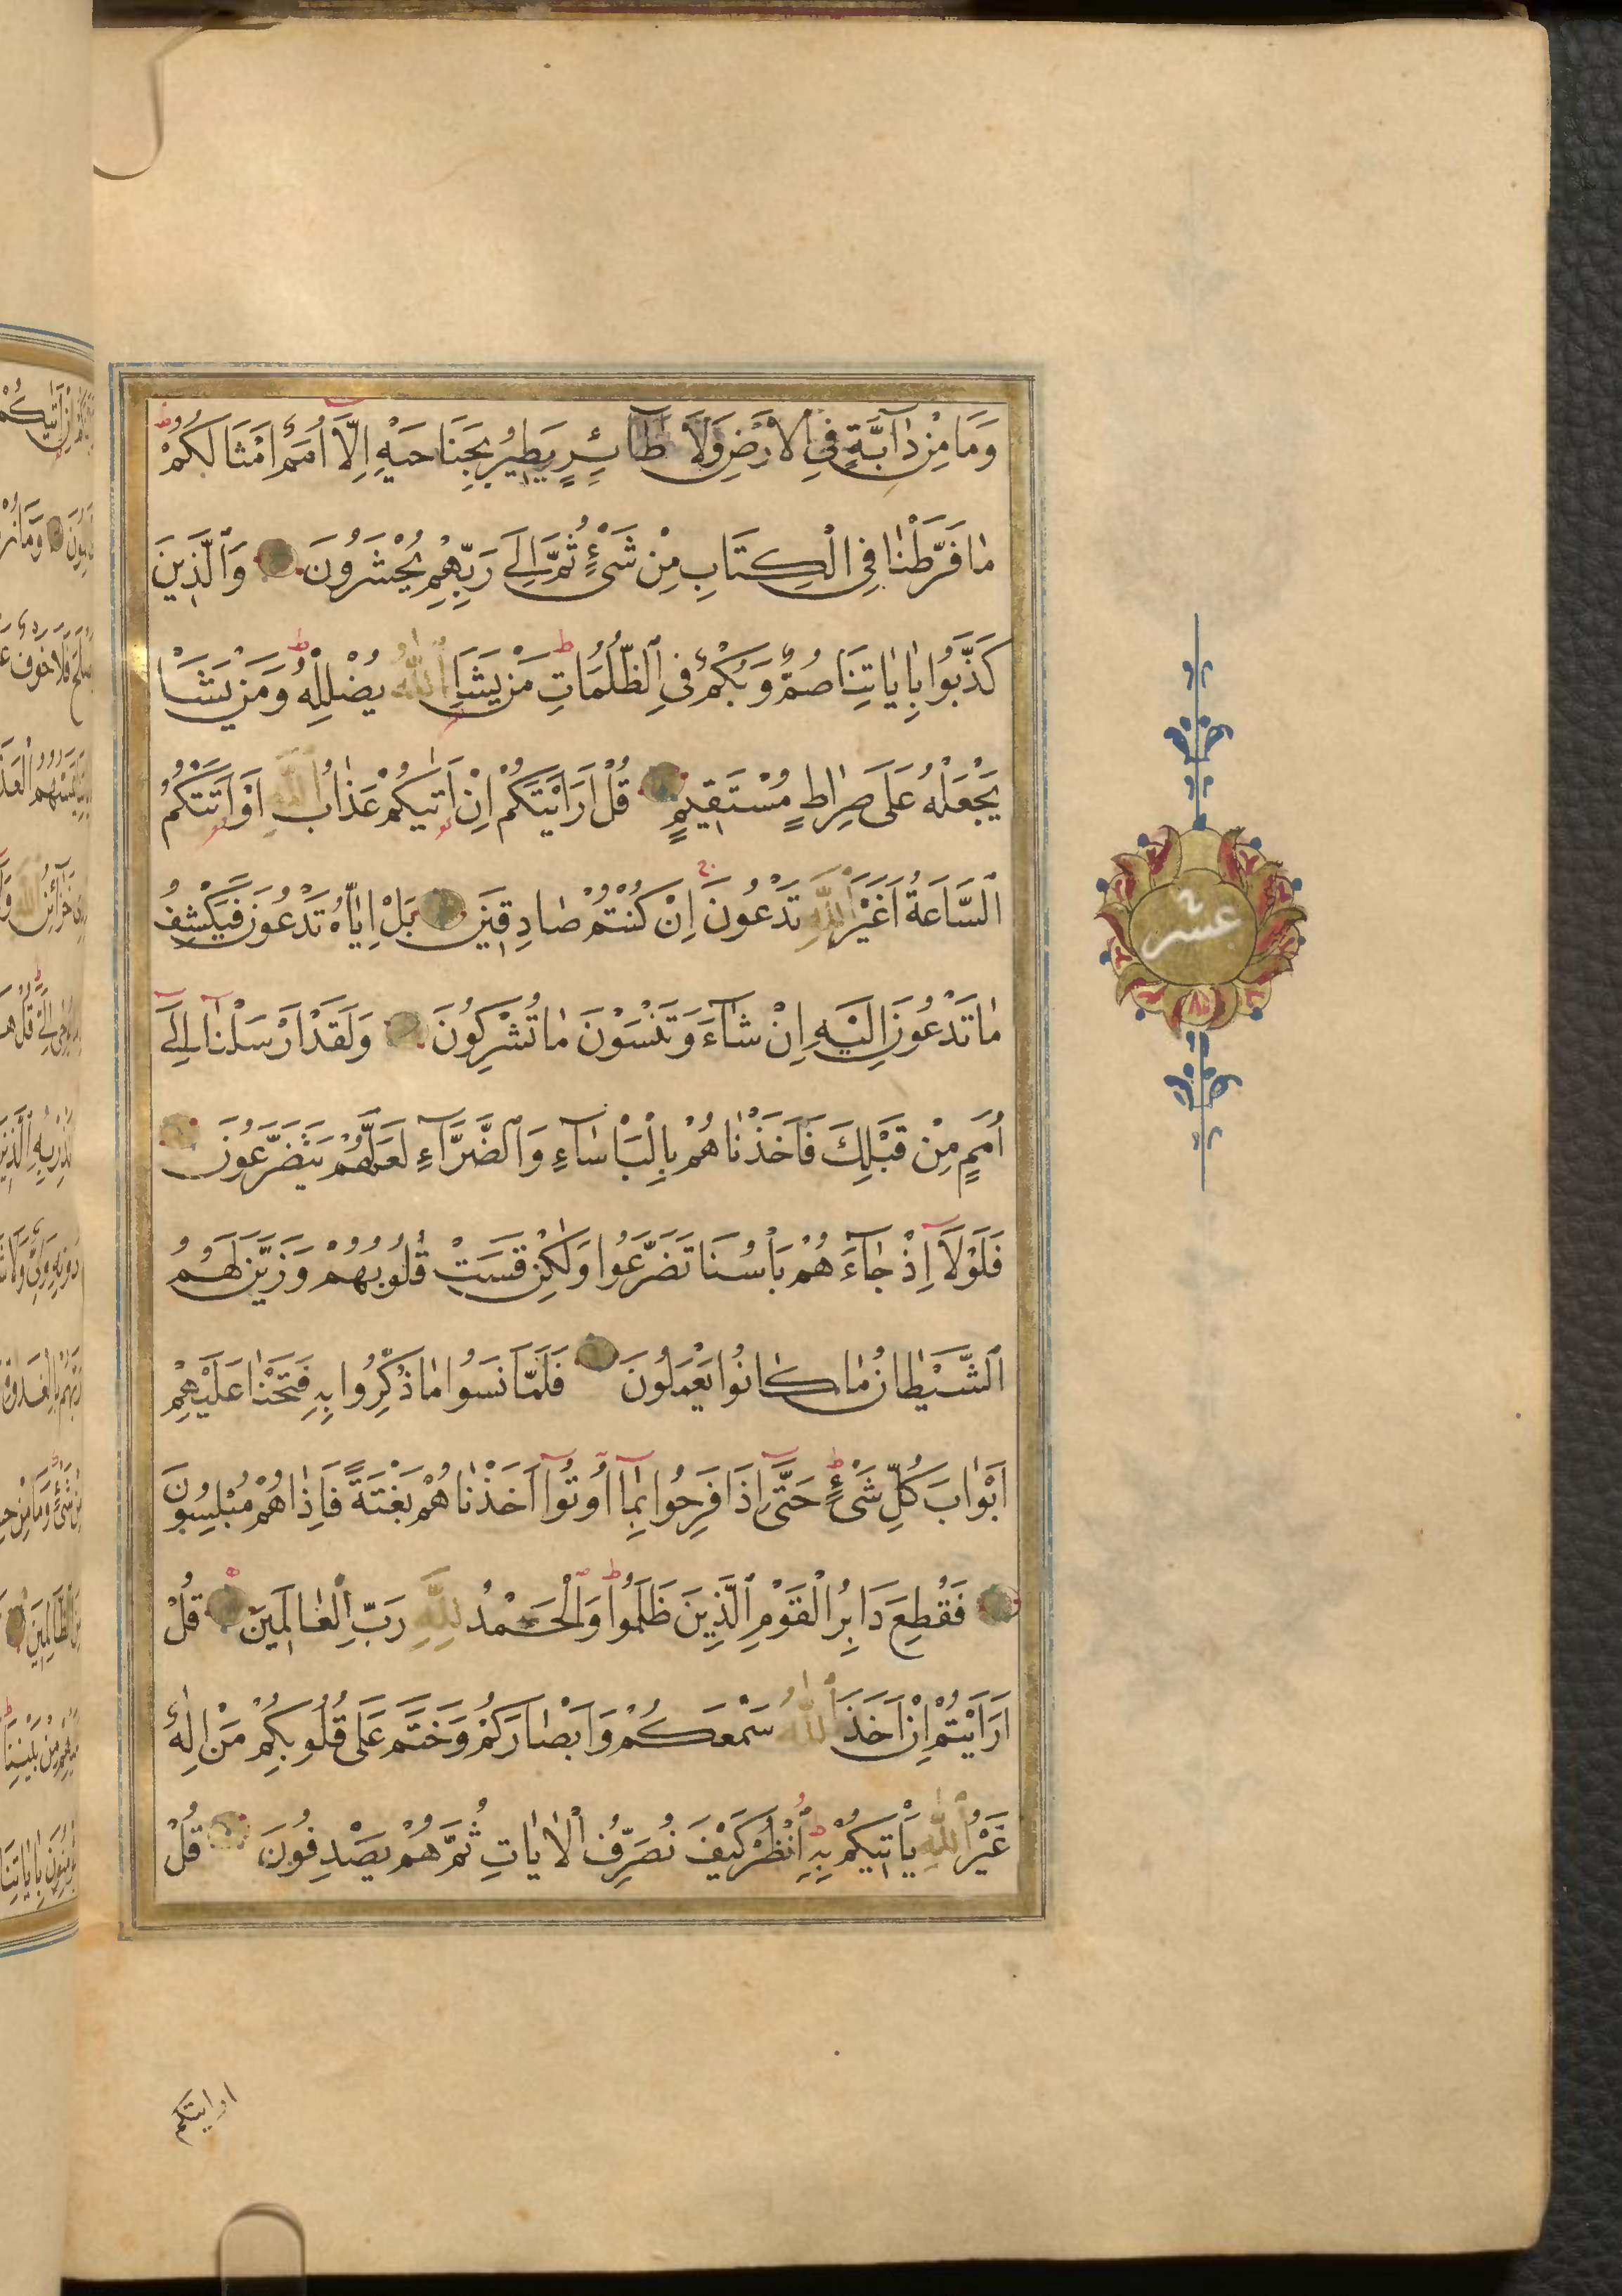 وَمَا مِنْ دَآبَّةٍ فِي الْاَرْضِ وَلَا طَآئِرٍ يَطِيرُ بِجَنَاحَيْهِ اِلَّآ اُمَمٌ اَمْثَالُكُمْ
مَا فَرَّطْنَا فِي الْكِتَابِ مِنْ شَیْءٍ ثُمَّ اِلٰى رَبِّهِمْ يُحْشَرُونَ وَالَّذِينَ
كَذَّبُوا بِاٰيَاتِنَا صُمٌّ وَبُكْمٌ فِي الظُّلُمَاتِ مَنْ يَشَأِ اللّٰهُ يُضْلِلْهُ وَمَنْ يَشَأْ
يَجْعَلْهُ عَلَى صِرَاطٍ مُسْتَقِيمٍ قُلْ اَرَاَيْتَكُمْ اِنْ اَتٰيكُمْ عَذَابُ اللّٰهِ اَوْ اَتَتْكُمُ
السَّاعَةُ اَغَيْرَ اللّٰهِ تَدْعُونَ اِنْ كُنْتُمْ صَادِقِينَ بَلْ اِيَّاهُ تَدْعُونَ فَيَكْشِفُ
مَا تَدْعُونَ اِلَيْهِ اِنْ شَآءَ وَتَنْسَوْنَ مَا تُشْرِكُونَ وَلَقَدْ اَرْسَلْنَآ اِلٰٓى
اُمَمٍ مِنْ قَبْلِكَ فَاَخَذْنَاهُمْ بِالْبَاْسَآءِ وَالضَّرَّآءِ لَعَلَّهُمْ يَتَضَرَّعُونَ
فَلَوْلَآ اِذْ جَآءَهُمْ بَاْسُنَا تَضَرَّعُوا وَلٰكِنْ قَسَتْ قُلُوبُهُمْ وَزَيَّنَ لَهُمُ
الشَّيْطَانُ مَا كَانُوا يَعْمَلُونَ فَلَمَّا نَسُوا مَا ذُكِّرُوا بِهِ فَتَحْنَا عَلَيْهِمْ
اَبْوَابَ كُلِّ شَیْءٍ حَتَّٓى اِذَا فَرِحُوا بِمَآ اُوتُوٓا اَخَذْنَاهُمْ بَغْتَةً فَاِذَا هُمْ مُبْلِسُونَ
فَقُطِعَ دَابِرُ الْقَوْمِ الَّذِينَ ظَلَمُوا وَالْحَمْدُ لِلّٰهِ رَبِّ الْعَالَمِينَ قُلْ
اَرَاَيْتُمْ اِنْ اَخَذَ اللّٰهُ سَمْعَكُمْ وَاَبْصَارَكُمْ وَخَتَمَ عَلَى قُلُوبِكُمْ مَنْ اِلٰهٌ
غَيْرُ اللّٰهِ يَاْتِيكُمْ بِهِ اُنْظُرْ كَيْفَ نُصَرِّفُ الْاٰيَاتِ ثُمَّ هُمْ يَصْدِفُونَ قُلْ
عشر
ارايتكم